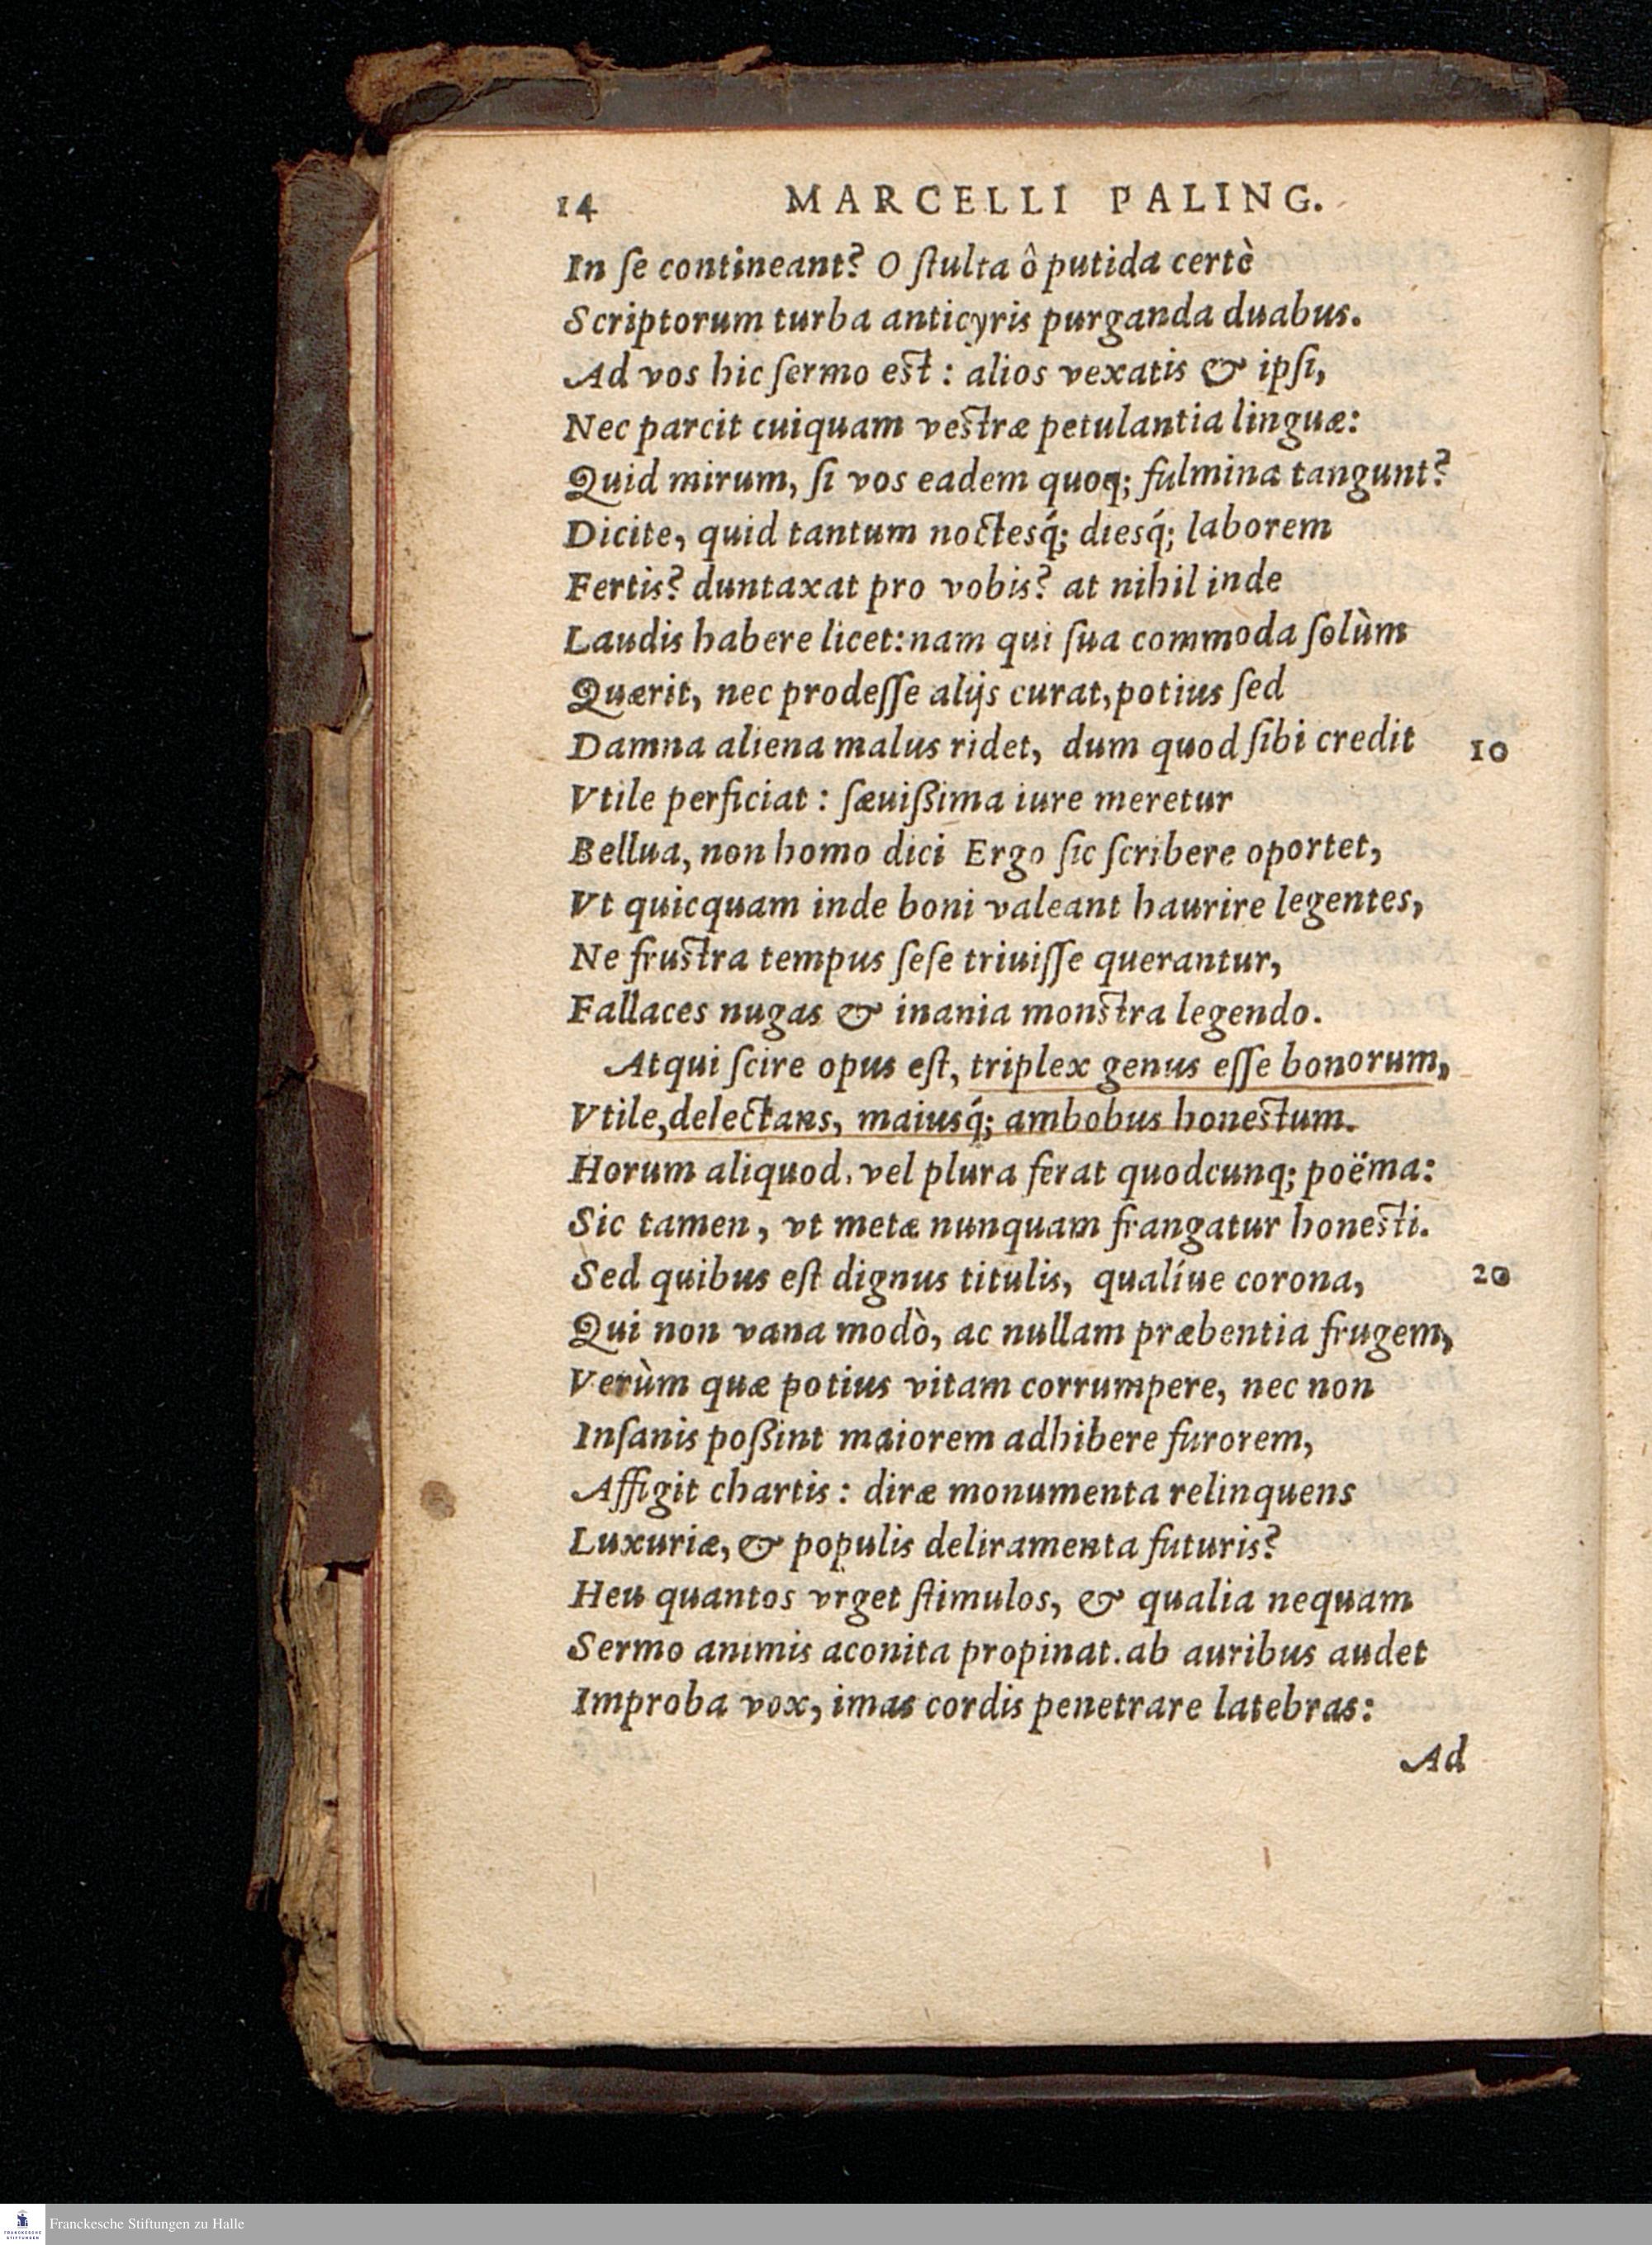 14 MARCELLI PALING.
In ſe contineant? O ſtulta ô putida certè
Scriptorum turba anticyris purganda duabus.
Ad vos hic ſermo eſt : alios vexatis & ipſi,
Nec parcit cuiquam veſtræ petulantia linguæ:
Quid mirum, ſi vos eadem quoq; fulmina tangunt?
Dicite, quid tantum noctesq́; diesq́; laborem
Fertis? duntaxat pro vobis? at nihil inde
Laudis habere licet: nam qui ſua commoda ſolùm
Quærit, nec prodeſſe alijs curat, potius ſed
Damna aliena malus ridet, dum quod ſibi credit 10
Vtile perficiat : ſæuißima iure meretur
Bellua, non homo dici Ergo ſic ſcribere oportet,
Vt quicquam inde boni valeant haurire legentes,
Ne fruſtra tempus ſeſe triuiſſe querantur,
Fallaces nugas & inania monſtra legendo.
Atqui ſcire opus eſt, triplex genus eſſe bonorum,
Vtile, delectans, maiusq́; ambobus honeſtum.
Horum aliquod, vel plura ferat quodcunq; poëma:
Sic tamen, vt metæ nunquam frangatur honeſti.
Sed quibus eſt dignus titulis, qualíue corona, 20
Qui non vana modò, ac nullam præbentia frugem,
Verùm quæ potius vitam corrumpere, nec non
Inſanis poßint maiorem adhibere furorem,
Affigit chartis : diræ monumenta relinquens
Luxuriæ, & populis deliramenta futuris?
Heu quantos vrget ſtimulos, & qualia nequam
Sermo animis aconita propinat. ab auribus audet
Improba vox, imas cordis penetrare latebras:
Ad
FRANCKESCHE STIFTUNGEN
Franckesche Stiftungen zu Halle